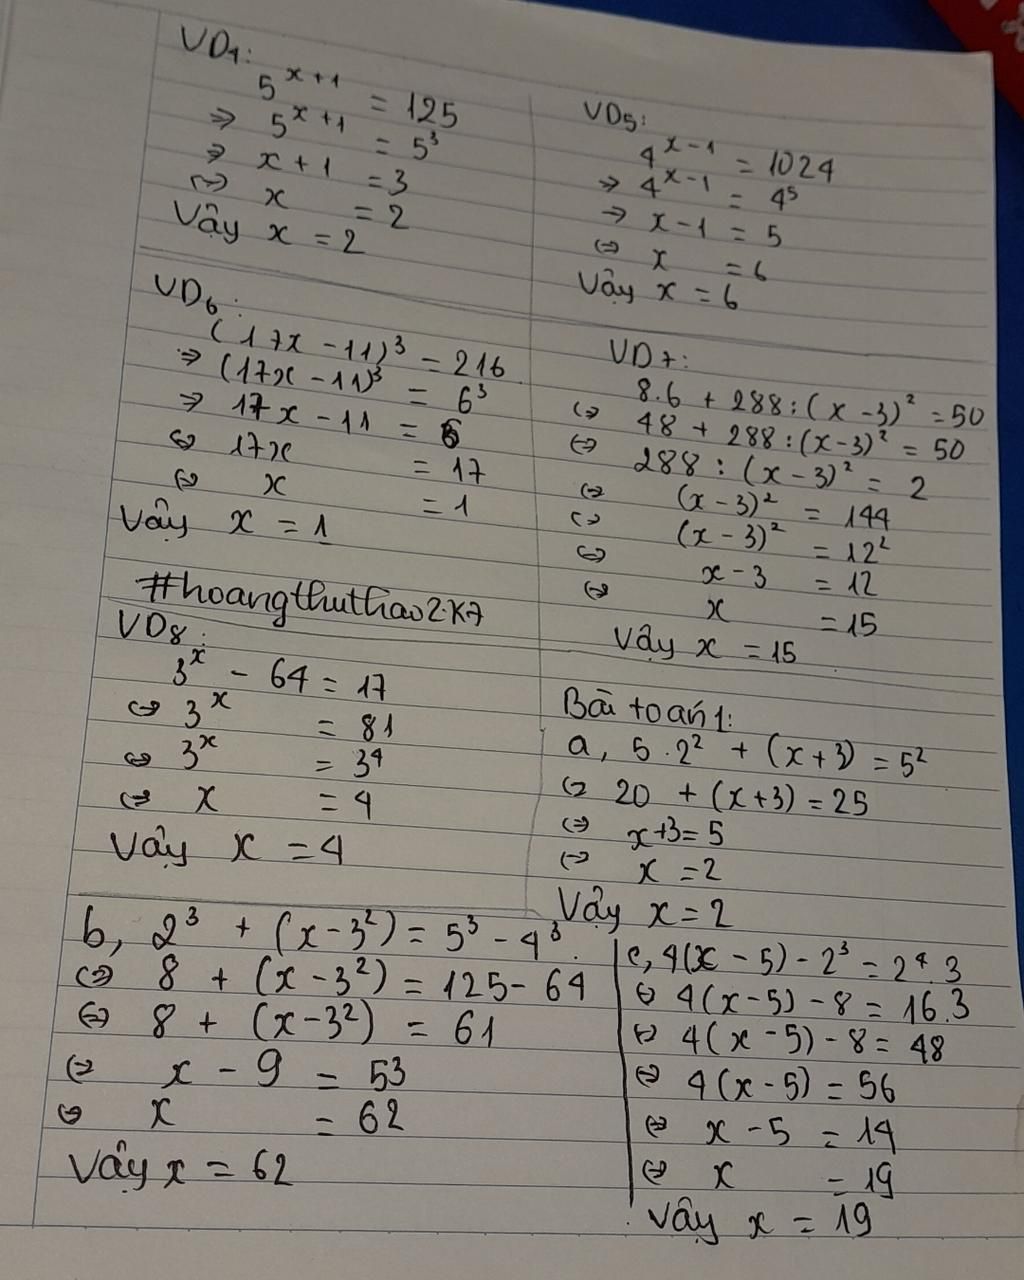 VD₁:
5^{x+1} = 125
⇒ 5^{x+1} = 5³
⇒ x + 1 = 3
⇔ x = 2
Vậy x = 2
VD₅:
4^{x-1} = 1024
⇒ 4^{x-1} = 4⁵
⇒ x - 1 = 5
⇔ x = 6
Vậy x = 6
VD₆:
(17x - 11)³ = 216
⇒ (17x - 11)³ = 6³
⇒ 17x - 11 = 6
⇔ 17x = 17
⇔ x = 1
Vậy x = 1
VD7:
8.6 + 288 : (x - 3)² = 50
⇔ 48 + 288 : (x - 3)² = 50
⇔ 288 : (x - 3)² = 2
⇔ (x - 3)² = 144
⇔ (x - 3)² = 12²
⇔ x - 3 = 12
⇔ x = 15
Vậy x = 15
#hoangthuthao2K7
VD8:
3^x - 64 = 17
⇔ 3^x = 81
⇔ 3^x = 3⁴
⇔ x = 4
Vậy x = 4
Bài toán 1:
a, 5.2² + (x + 3) = 5²
⇔ 20 + (x + 3) = 25
⇔ x + 3 = 5
⇔ x = 2
Vậy x = 2
b, 2³ + (x - 3²) = 5³ - 4³.
⇔ 8 + (x - 3²) = 125 - 64
⇔ 8 + (x - 3²) = 61
⇔ x - 9 = 53
⇔ x = 62
Vậy x = 62
c, 4(x - 5) - 2³ = 2⁴.3
⇔ 4(x - 5) - 8 = 16.3
⇔ 4(x - 5) - 8 = 48
⇔ 4(x - 5) = 56
⇔ x - 5 = 14
⇔ x = 19
Vậy x = 19